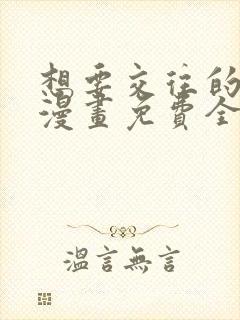 想要交往的
漫畫免費全
溫言無言